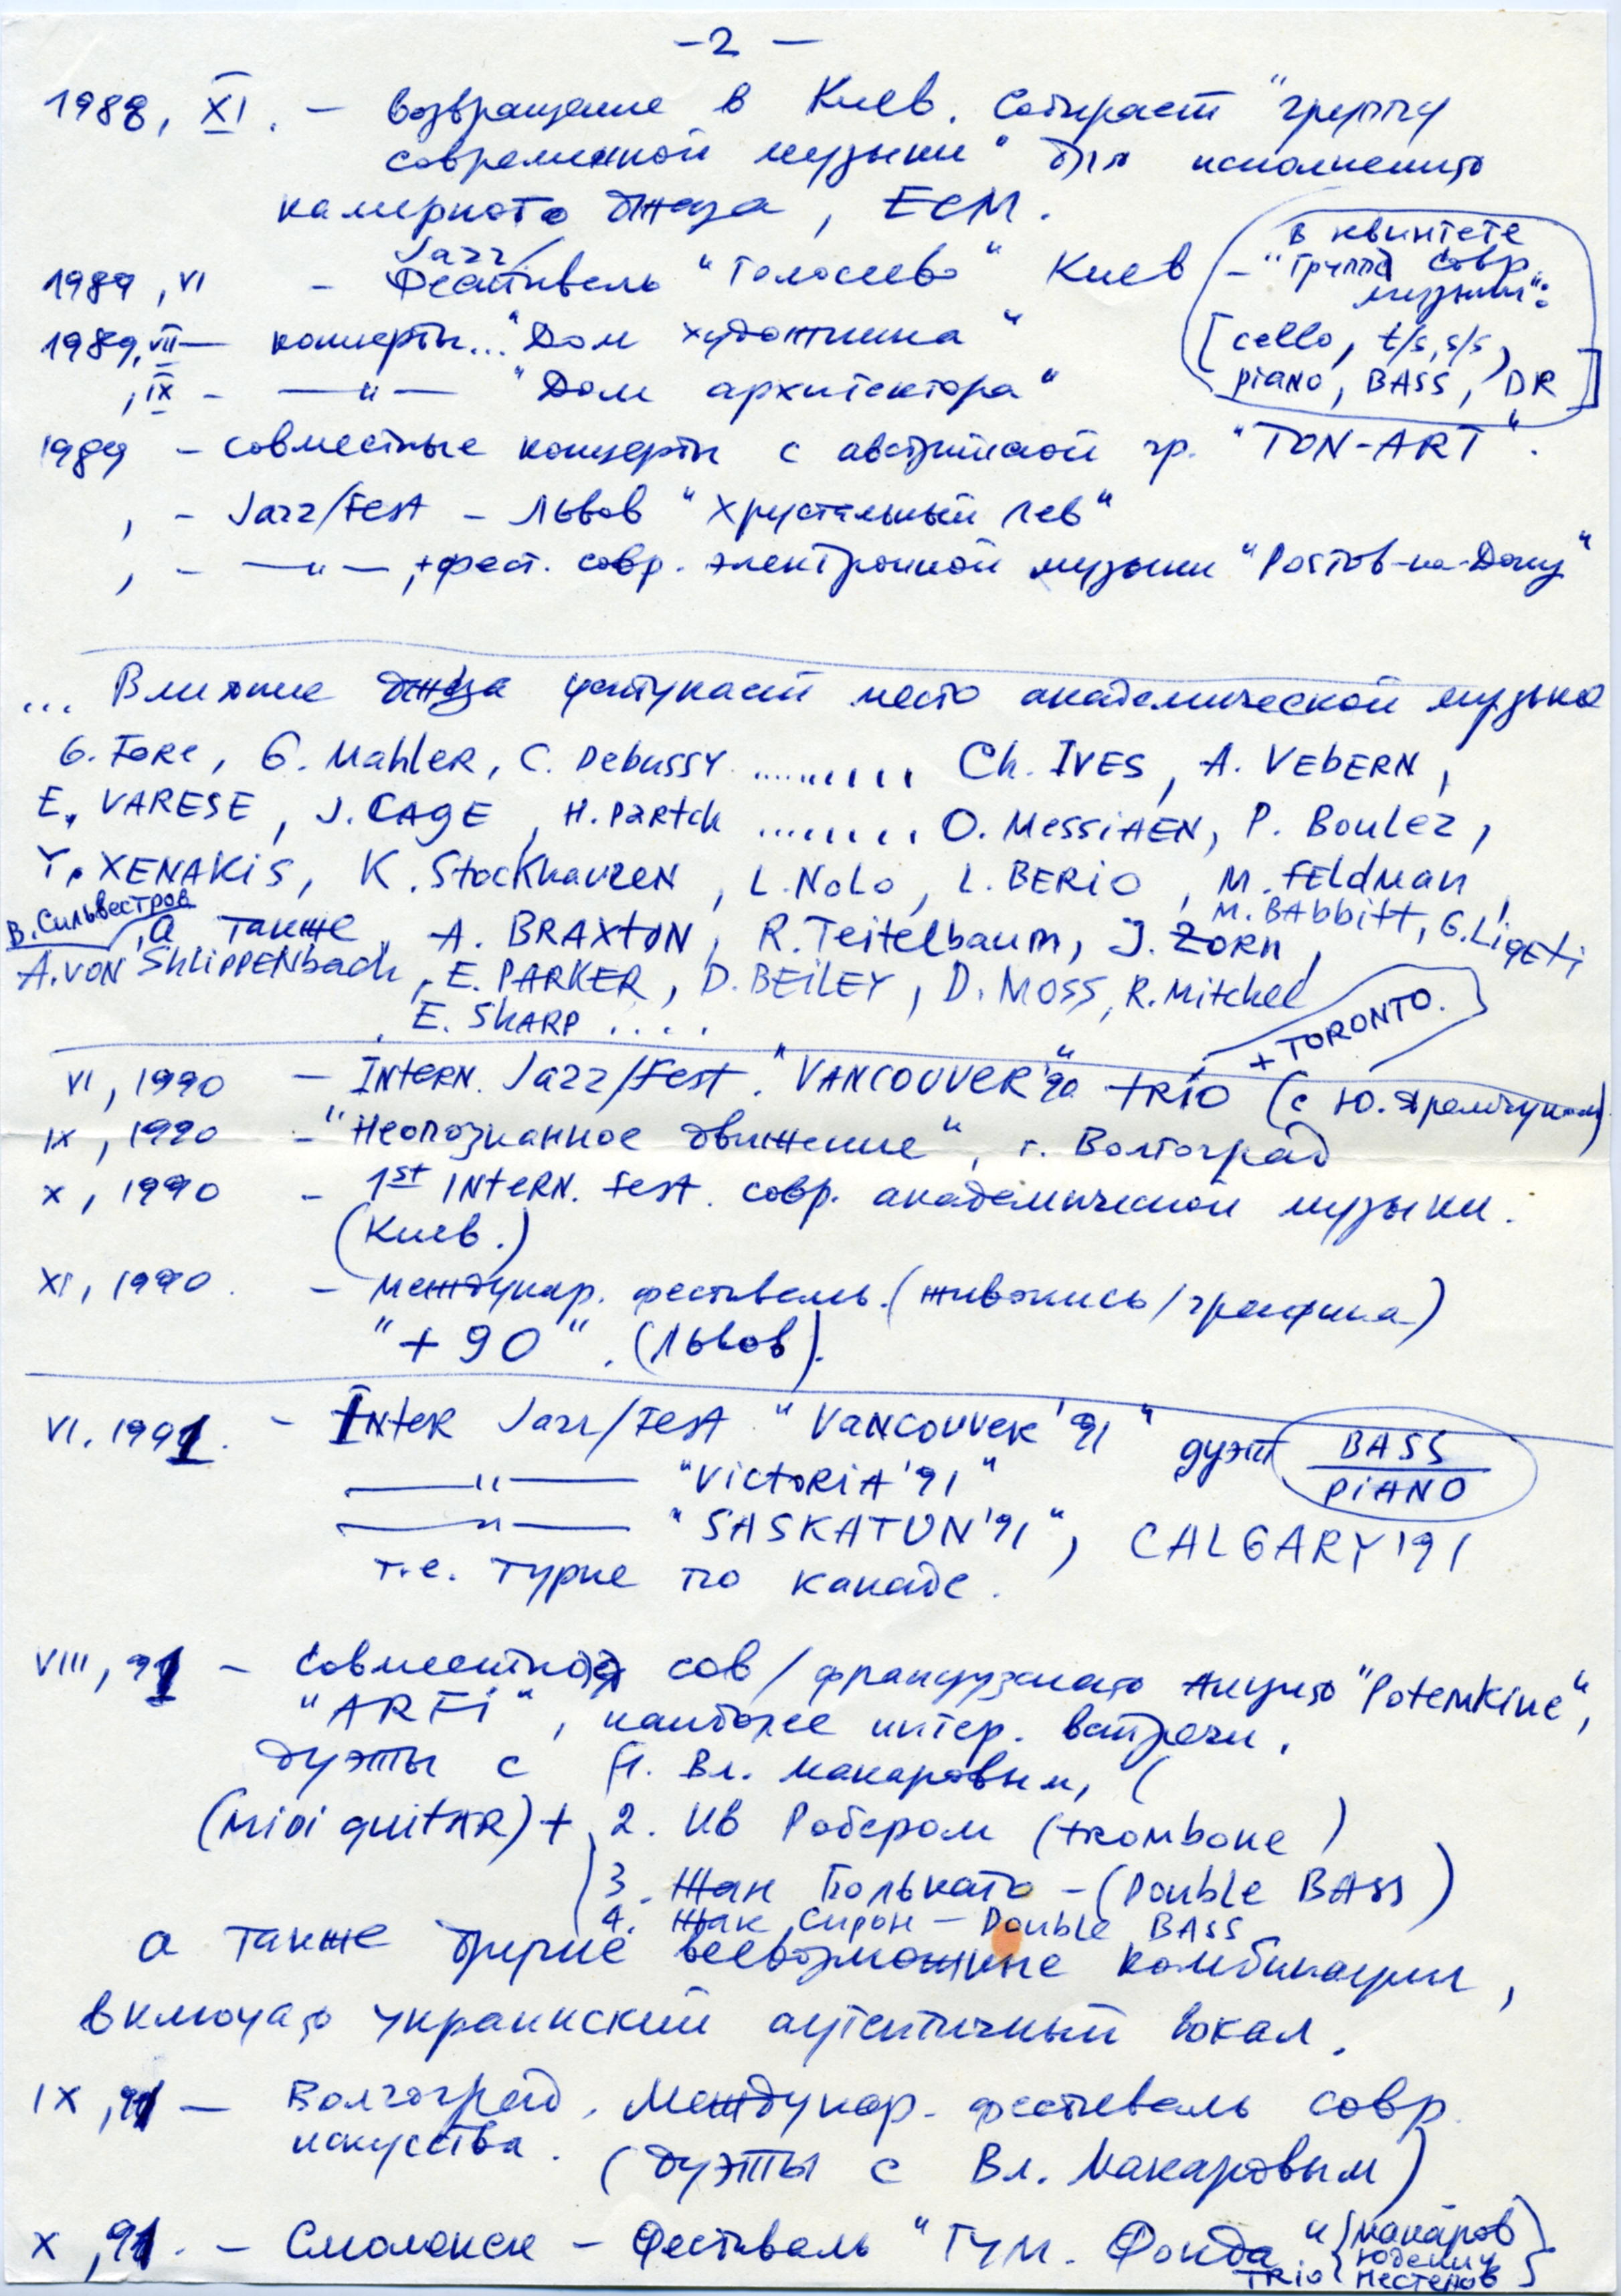 -2-
1988, XI. - возвращение в Киев. Собирает "группу
современной музыки" для исполнения
камерного джаза, ECM.
Jazz/
1989, VI - Фестиваль "Голосеево" Киев -
в квинтете
"Группа совр.
музыки":
[cello, t/s, s/s,
piano, BASS, DR]
1989, VII - концерты... "Дом художника"
, IX - —"— "Дом архитектора"
1989 - совместные концерты с австрийской гр. "TON-ART".
, - Jazz/Fest - Львов "Хрустальный лев"
, - —"—, + фест. совр. электронной музыки "Ростов-на-Дону"
... Влияние джаза уступает место академической музыке
G. Fore, G. Mahler, C. Debussy ......... Ch. IVES, A. VEBERN,
E. VARESE, J. CAGE, H. Partch ........ O. MESSIAEN, P. Boulez,
Y. XENAKIS, K. Stockhauzen, L. Nono, L. BERIO, M. FELdman,
M. BAbbitt, G. LigEti
В. Сильвестров
, а также A. BRAXTON, R. Teitelbaum, J. ZORN,
A. VON ShliPPENbach, E. PARKER, D. BEILEY, D. MOSS, R. Mitchel
E. ShARP ....
+ TORONTO.
VI, 1990 - INTERN. Jazz/Fest. "VANCOUVER'90" TRIO (с Ю. Яремчуком)
IX, 1990 - "Неопознанное движение", г. Волгоград
X, 1990 - 1st INTERN. fest. совр. академической музыки.
(Киев.)
XI, 1990. - Междунар. фестиваль. (живопись/графика)
"+90". (Львов).
VI. 1991. - INTER Jazz/Fest "VANCOUVER'91" дуэт BASS
PIANO
—"— "VICTORIA'91"
—"— "SASKATUN'91", CALGARY'91
т.е. турне по канаде.
VIII, 91 - Совместная сов/французская акция "Potemkine",
"ARFI", наиболее интер. встречи.
дуэты с 1. Вл. Макаровым, (
(midi guitAR) + 2. Ив Робером (trombone)
3. Жан Больката - (Double BASS)
4. Жак Сирон - Double BASS
а также другие всевозможные комбинации,
включая украинский аутентичный вокал.
IX, 91 - Волгоград. Междунар. фестиваль совр.
искусства. (дуэты с Вл. Макаровым)
X, 91. - Смоленск - Фестиваль "Гум. Фонда".
TRIO {Макаров
Юденич
Нестеров}